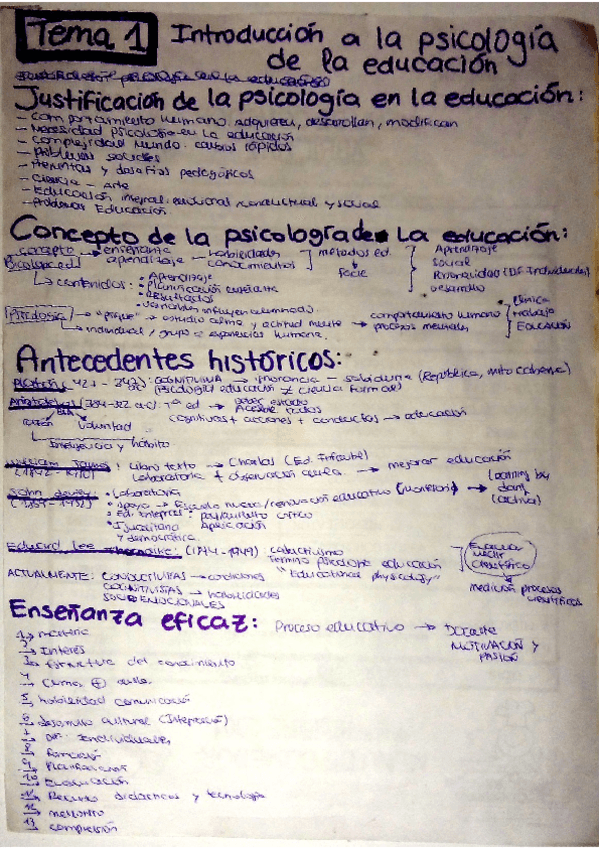 Tema 1 Introducción a la psicología
de la educación
Justificación de la psicología en la educación:
- Comportamiento humano: adquieren, desarrollan, modifican
- Necesidad psicología en la educación
- Complejidad mundo: cambios rápidos
- Problemas sociales
- y desafíos pedagógicos
- Ciencia - Arte
- Educación integral: emocional, conductual y social
- Problemas Educación
Concepto de la psicología de la educación:
concepto → enseñanza → habilidades métodos ed. Aprendizaje
Psicología ed aprendizaje conocimientos Social
Personalidad (Dif. Individuales)
Desarrollo
→ contenidos: • Aprendizaje
• Planificación enseñanza
• Resultados
• Variables influyen alumnado
Clínica
Psicología → "psique" → estudio alma y actitud mente comportamiento humano → trabajo
→ individual / grupo → apariencias humana procesos mentales Educación
Antecedentes históricos:
Platón: COGNITIVA → ignorancia - sabiduría (República, mito caverna)
(psicología educación ≠ ciencia formal)
Aristóteles (384-322 a.c) ed → deber estado
Acceso todos
razón voluntad cognitivas + acciones + conductas → educación
Inteligencia y hábito
William James: Libro texto → Charlas → mejorar educación
Laboratorio + observación aula
John Dewey: • Laboratorio Learning by
(1859-1952) • Apoyo → Escuela nueva/renovación educativa → doing
• Ed. integral: pensamiento crítico (activa)
• Igualitaria Aplicación
y democrática
Edward Lee Thorndike: (1874-1949) conductivismo
Término psicología educación
"Educational physcology"
Científico
→ medición procesos
científicos
ACTUALMENTE: CONDUCTIVISTAS → condiciones
COGNITIVISTAS → habilidades
SOCIO EMOCIONALES
Enseñanza eficaz: Proceso educativo → Docente
MOTIVACIÓN Y
PASIÓN
1. materia
2. Interés
3. estructura del conocimiento
4. Clima ⊕ aula
5. habilidad comunicación
6. desarrollo cultural (Integración)
7. Dif. individuales
8. Formación
9. Planificación
10. Evaluación
11. Recursos didácticos y tecnología
12.
13. compresión